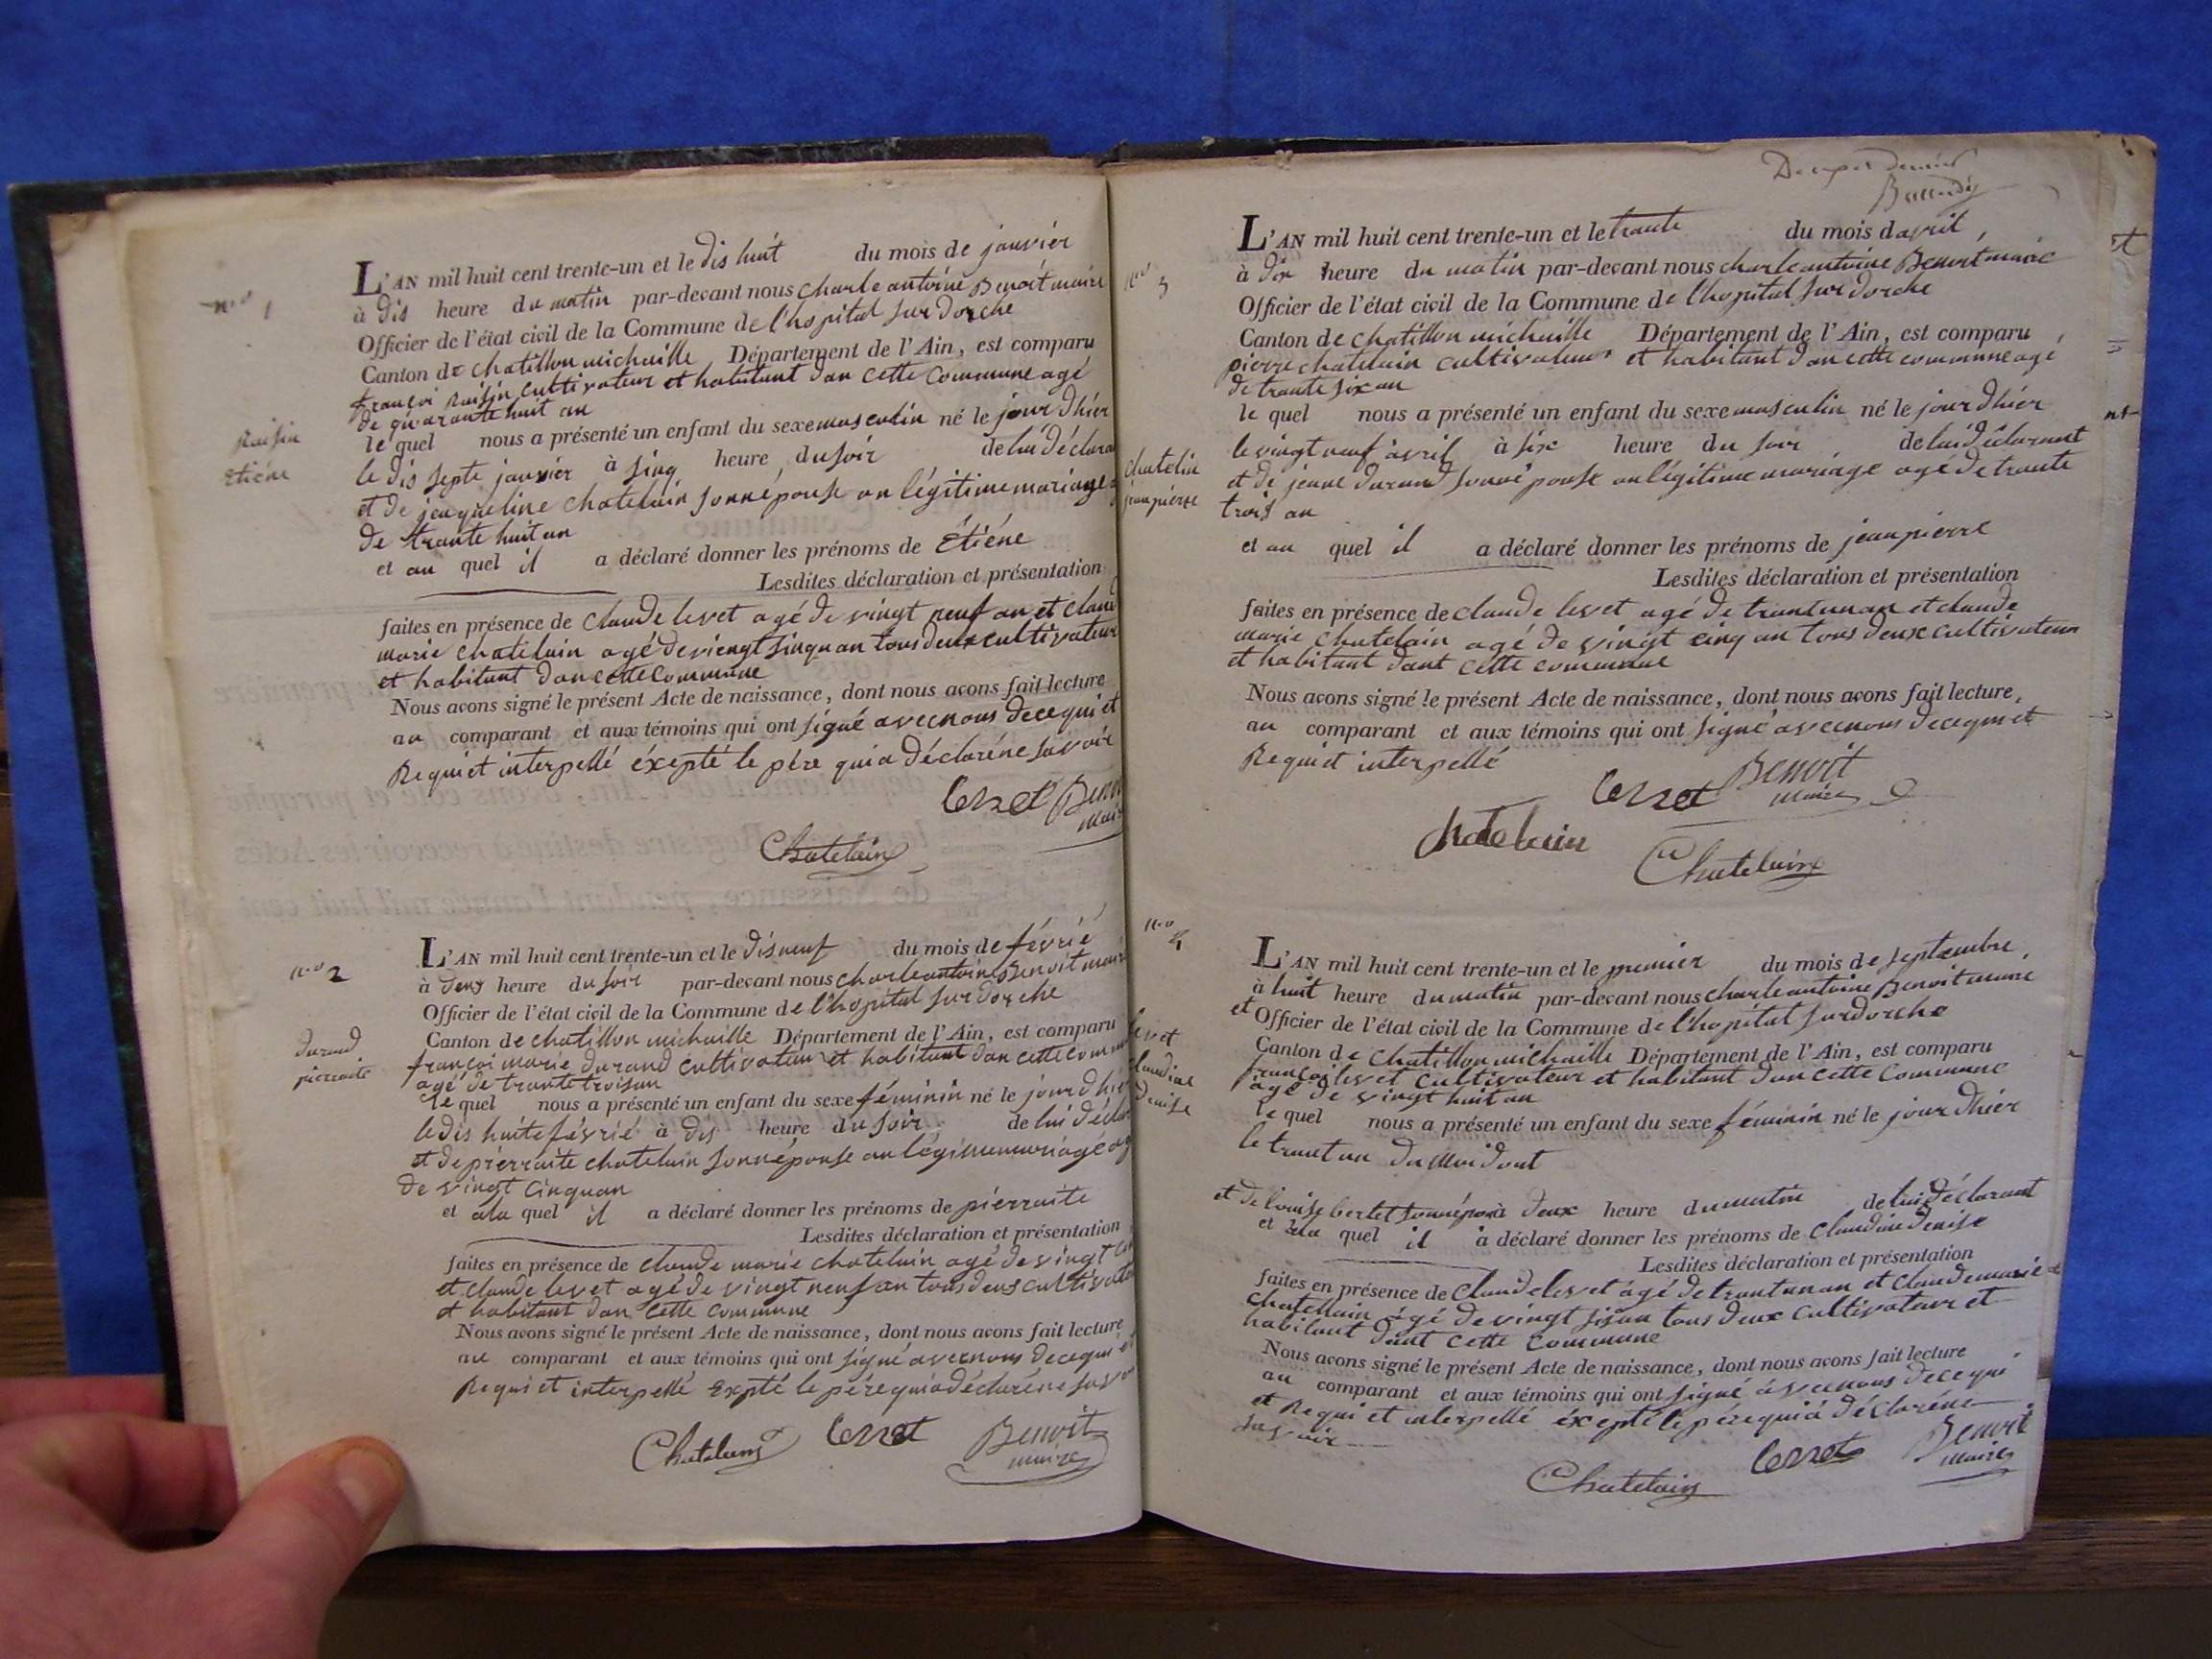 n.ro 1
Raisin
Etiéne
L'AN mil huit cent trente-un et le dis huit du mois de janvier
à dis heure du matin par-devant nous charle antoine Benoit maire
Officier de l'état civil de la Commune de l'hopital sur dorche
Canton de chatillon michaille Département de l'Ain, est comparu
françoi Raisin cultivateur et habitant dan cette commune agé
de quarante huit an
le quel nous a présenté un enfant du sexe masculin né le jour dhier
le dis septe janvier à sinq heure du soir de lui déclara
et de jacqueline chatelain sonnépouse an légitime mariage
de trante huit an
et au quel il a déclaré donner les prénoms de Étiéne
Lesdites déclaration et présentation
faites en présence de claude levet agé de vingt neuf an et claud
marie chatelain agé de viengt sinquan tous deux cultivateur
et habitant dan cette commune
Nous avons signé le présent Acte de naissance, dont nous avons fait lecture
au comparant et aux témoins qui ont signé avecnous decequi et
Requi et interpellé éxcepté le pére qui a déclaréne savoir
levet Benoi
mair
Chatelain
n.ro 2
durand
pierraite
L'AN mil huit cent trente-un et le disneuf du mois de févrié
à deus heure du soir par-devant nous charle antoine Benoit mair
Officier de l'état civil de la Commune de l'hopital sur dorche
Canton de chatillon michaille Département de l'Ain, est comparu
françoi marie durand cultivateur et habitant dan cette comm
agé de trante troisan
le quel nous a présenté un enfant du sexe féminin né le jour dhie
le dis huite févrié à dis heure du soir de lui décla
et de pierraite chatelain sonnépouse an légitimemariagé ag
de vingt cinquan
et ala quel il a déclaré donner les prénoms de pierraite
Lesdites déclaration et présentation
faites en présence de claude marie chatelain agé de vingt
et claude levet agé de vingt neuf an tous deus cultivate
et habitant dan cette commune
Nous avons signé le présent Acte de naissance, dont nous avons fait lecture
au comparant et aux témoins qui ont signé avecnous decequi
Requi et interpellé expté le pére quiadéclaréne sav
Chatelain levet Benoit
maire
n.ro 3
chatelin
jeanpierre
L'AN mil huit cent trente-un et le trante du mois davril
à dix heure du matin par-devant nous charle antoine Benoit maire
Officier de l'état civil de la Commune de l'hopital sur dorche
Canton de chatillon michaille Département de l'Ain, est comparu
pierre chatelain cultivateur et habitant dan cette commune agé
de trante six an
le quel nous a présenté un enfant du sexe masculin né le jour dhier
le vingt neuf avril à six heure du soir de lui déclarant
et de jeane durand sonné pouse an légitime mariage agé de trante
trois an
et au quel il a déclaré donner les prénoms de jeanpierre
Lesdites déclaration et présentation
faites en présence de claude levet agé de trantunan et claude
marie chatelain agé de vingt cinq an tous deux cultivateur
et habitant dant cette commune
Nous avons signé le présent Acte de naissance, dont nous avons fait lecture,
au comparant et aux témoins qui ont signé avecnous decequi et
Requi et interpellé
levet Benoit
maire
chatelain
Chatelain
n.ro 4
levet
claudine
denise
L'AN mil huit cent trente-un et le premier du mois de septembre
à huit heure du matin par-devant nous charle antoine Benoit maire
et Officier de l'état civil de la Commune de l'hopital sur dorche
Canton de chatillon michaille Département de l'Ain, est comparu
françoi levet cultivateur et habitant dan cette commune
agé de vingt huit an
le quel nous a présenté un enfant du sexe féminin né le jour dhier
le trant un du moi dout
et de louise bertet sonnépou à deux heure du matin de lui déclarant
et ala quel il a déclaré donner les prénoms de claudine denise
Lesdites déclaration et présentation
faites en présence de claude levet agé de trantunan et claudemarie
chatellain agé de vingt sisan tous deux cultivateur et
habitant dant cette commune
Nous avons signé le présent Acte de naissance, dont nous avons fait lecture
au comparant et aux témoins qui ont signé avecnous decequi
et Requi et interpellé éxcepté le pére qui a déclaréne
savoir
levet Benoit
maire
Chatelain